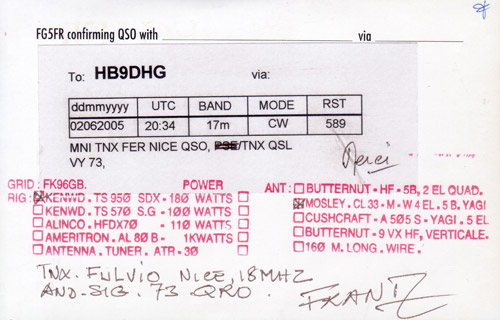 FG5FR confirming QSO with ____________ via ____
To: HB9DHG via:
ddmmyyyy UTC BAND MODE RST
02062005 20:34 17m CW 589
MNI TNX FER NICE QSO, PSE/TNX QSL
VY 73,
Merci
GRID: FK96GB. POWER ANT:☐BUTTERNUT-HF-5B, 2 EL QUAD.
RIG:☒KENWD.TS 950 SDX-180 WATTS ☐ ☒MOSLEY.CL 33-M-W 4 EL.5 B.YAGI
☐KENWD.TS 570 S.G-100 WATTS ☐ ☐CUSHCRAFT-A 50 5 S-YAGI.5 EL
☐ALINCO.HFDX70 - 110 WATTS ☐ ☐BUTTERNUT-9 VX HF, VERTICALE.
☐AMERITRON.AL 80 B- 1KWATTS ☐ ☐160 M.LONG.WIRE.
☐ANTENNA.TUNER.ATR-30 ☐
TNX. FULVIO NICE, 18MHZ
AND-SIG. 73 QRO. FRANTZ